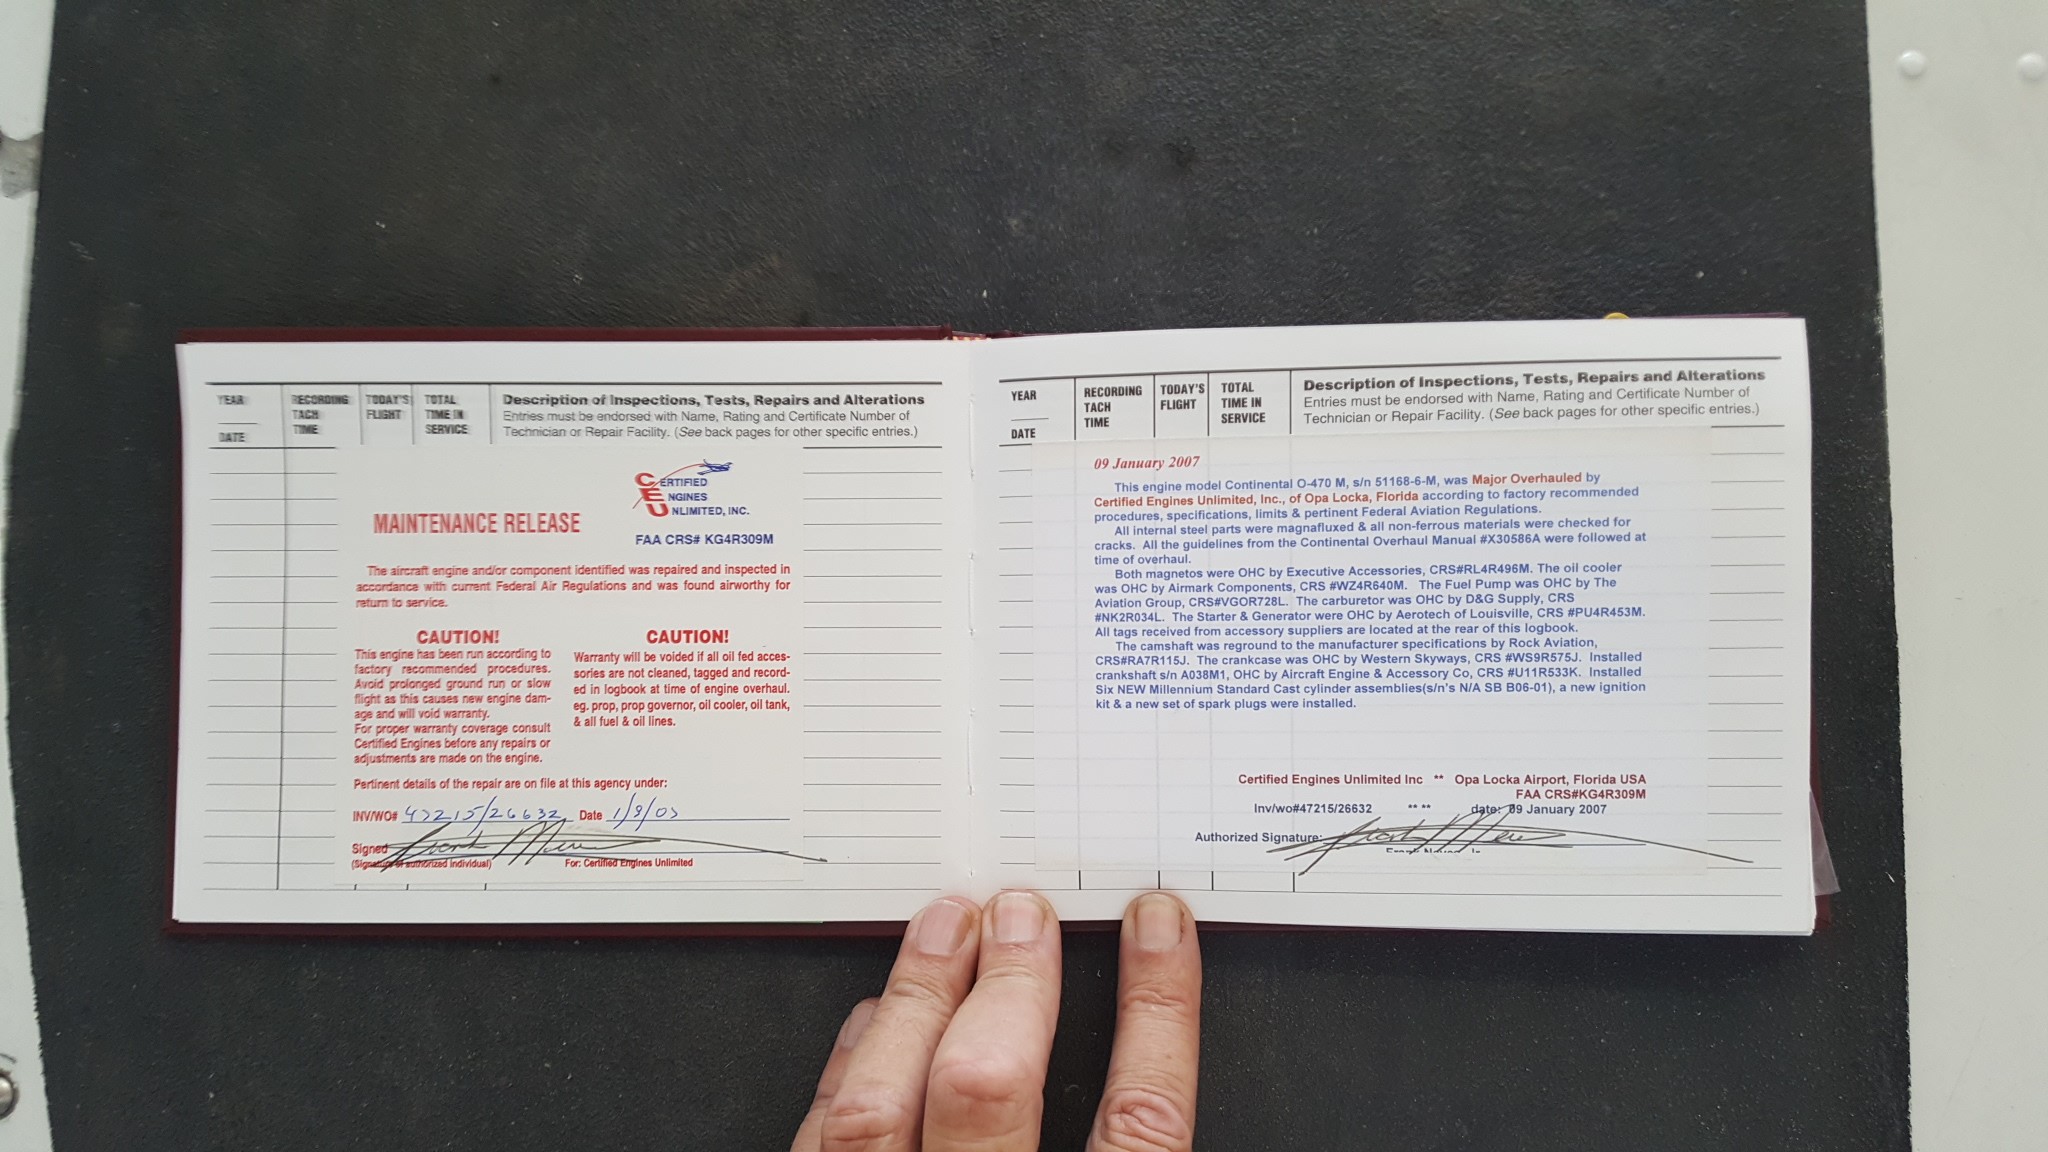 YEAR
DATE
RECORDING
TACH
TIME
TODAY'S
FLIGHT
TOTAL
TIME IN
SERVICE
Description of Inspections, Tests, Repairs and Alterations
Entries must be endorsed with Name, Rating and Certificate Number of
Technician or Repair Facility. (See back pages for other specific entries.)
CERTIFIED
ENGINES
UNLIMITED, INC.
MAINTENANCE RELEASE
FAA CRS# KG4R309M
The aircraft engine and/or component identified was repaired and inspected in
accordance with current Federal Air Regulations and was found airworthy for
return to service.
CAUTION!
This engine has been run according to
factory recommended procedures.
Avoid prolonged ground run or slow
flight as this causes new engine dam-
age and will void warranty.
For proper warranty coverage consult
Certified Engines before any repairs or
adjustments are made on the engine.
CAUTION!
Warranty will be voided if all oil fed acces-
sories are not cleaned, tagged and record-
ed in logbook at time of engine overhaul.
eg. prop, prop governor, oil cooler, oil tank,
& all fuel & oil lines.
Pertinent details of the repair are on file at this agency under:
INV/WO# 47215/26632 Date 1/9/07
Signed
(Signature of authorized individual) For: Certified Engines Unlimited
YEAR
DATE
RECORDING
TACH
TIME
TODAY'S
FLIGHT
TOTAL
TIME IN
SERVICE
Description of Inspections, Tests, Repairs and Alterations
Entries must be endorsed with Name, Rating and Certificate Number of
Technician or Repair Facility. (See back pages for other specific entries.)
09 January 2007
This engine model Continental O-470 M, s/n 51168-6-M, was Major Overhauled by
Certified Engines Unlimited, Inc., of Opa Locka, Florida according to factory recommended
procedures, specifications, limits & pertinent Federal Aviation Regulations.
All internal steel parts were magnafluxed & all non-ferrous materials were checked for
cracks. All the guidelines from the Continental Overhaul Manual #X30586A were followed at
time of overhaul.
Both magnetos were OHC by Executive Accessories, CRS#RL4R496M. The oil cooler
was OHC by Airmark Components, CRS #WZ4R640M. The Fuel Pump was OHC by The
Aviation Group, CRS#VGOR728L. The carburetor was OHC by D&G Supply, CRS
#NK2R034L. The Starter & Generator were OHC by Aerotech of Louisville, CRS #PU4R453M.
All tags received from accessory suppliers are located at the rear of this logbook.
The camshaft was reground to the manufacturer specifications by Rock Aviation,
CRS#RA7R115J. The crankcase was OHC by Western Skyways, CRS #WS9R575J. Installed
crankshaft s/n A038M1, OHC by Aircraft Engine & Accessory Co, CRS #U11R533K. Installed
Six NEW Millennium Standard Cast cylinder assemblies(s/n's N/A SB B06-01), a new ignition
kit & a new set of spark plugs were installed.
Certified Engines Unlimited Inc ** Opa Locka Airport, Florida USA
FAA CRS#KG4R309M
Inv/wo#47215/26632 ** ** date: 09 January 2007
Authorized Signature: